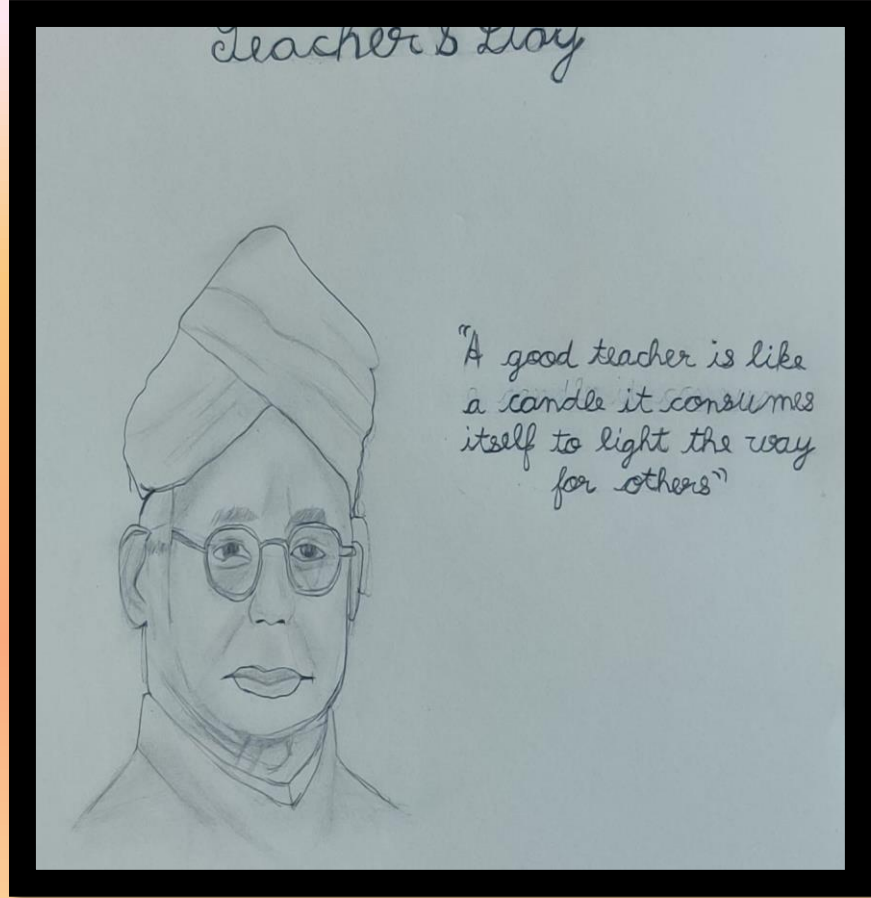 Teacher's Day
"A good teacher is like
a candle it consumes
itself to light the way
for others"